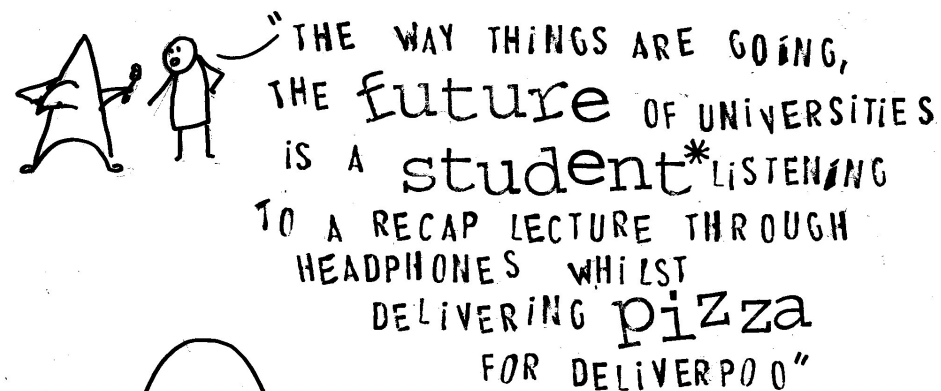 "THE WAY THiNGS ARE GOiNG,
THE future OF UNiVERSiTiES
iS A student* LiSTENiNG
TO A RECAP LECTURE THROUGH
HEADPHONES WHiLST
DELiVERiNG pizza
FOR DELiVERPOO"